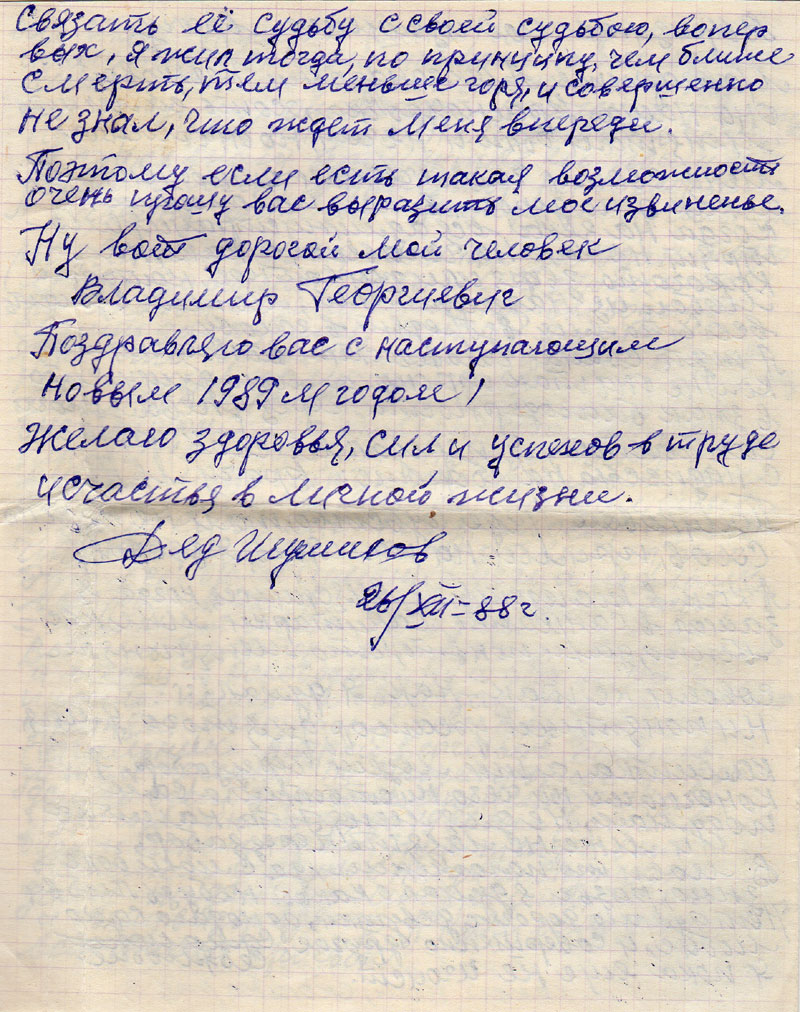 связать её судьбу с своей судьбою, вопер
вых, я жил тогда, по принципу, чем ближе
смерть, тем меньше горя, и совершенно
не знал, что ждет меня впереди.
Поэтому если есть такая возможность
очень прошу вас выразить мое извиненье.
Ну вот дорогой мой человек
Владимир Георгиевич
Поздравляю вас с наступающим
новым 1989 м годом!
Желаю здоровья, сил и успехов в труде
и счастья в личной жизни.
Дяд
26/XII-88г.